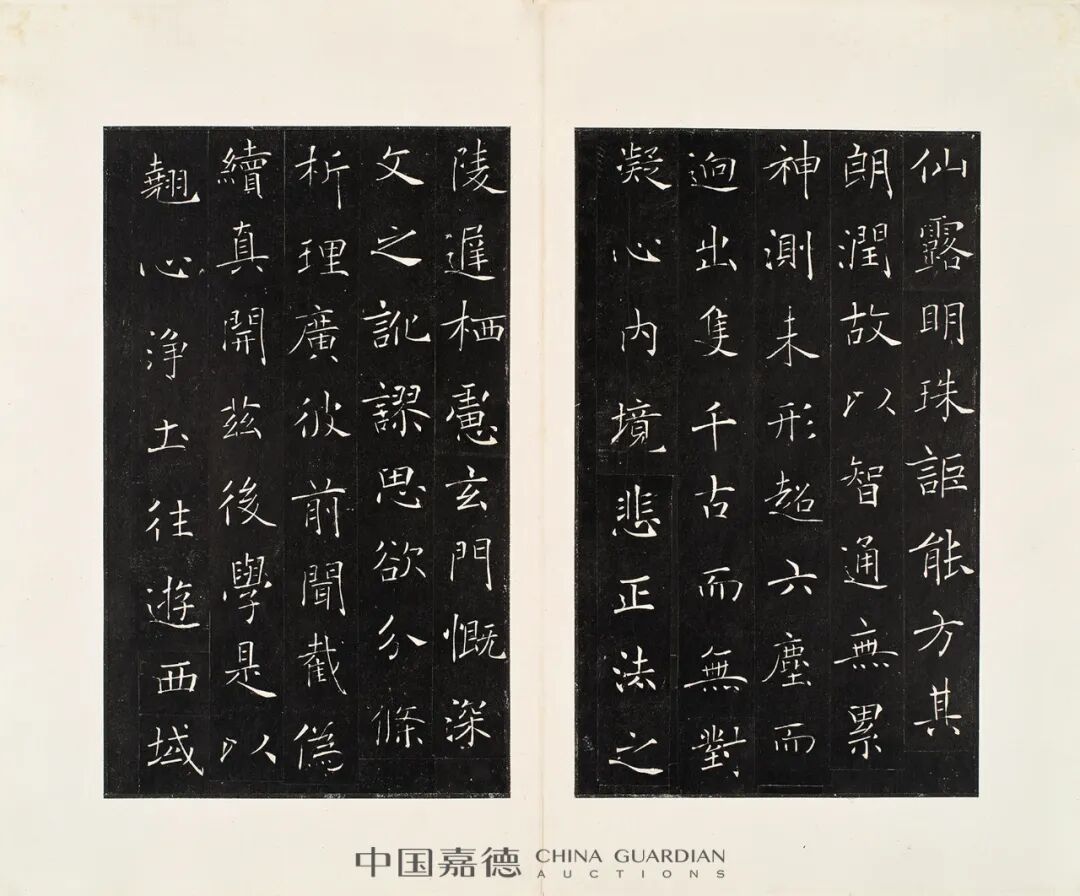 仙露明珠詎能方其
朗潤故以智通無累
神測未形超六塵而
逈出隻千古而無對
凝心內境悲正法之
陵遲栖慮玄門慨深
文之訛謬思欲分條
析理廣彼前聞截偽
續真開茲後學是以
翹心淨土往遊西域
中国嘉德 CHINA GUARDIAN
AUCTIONS